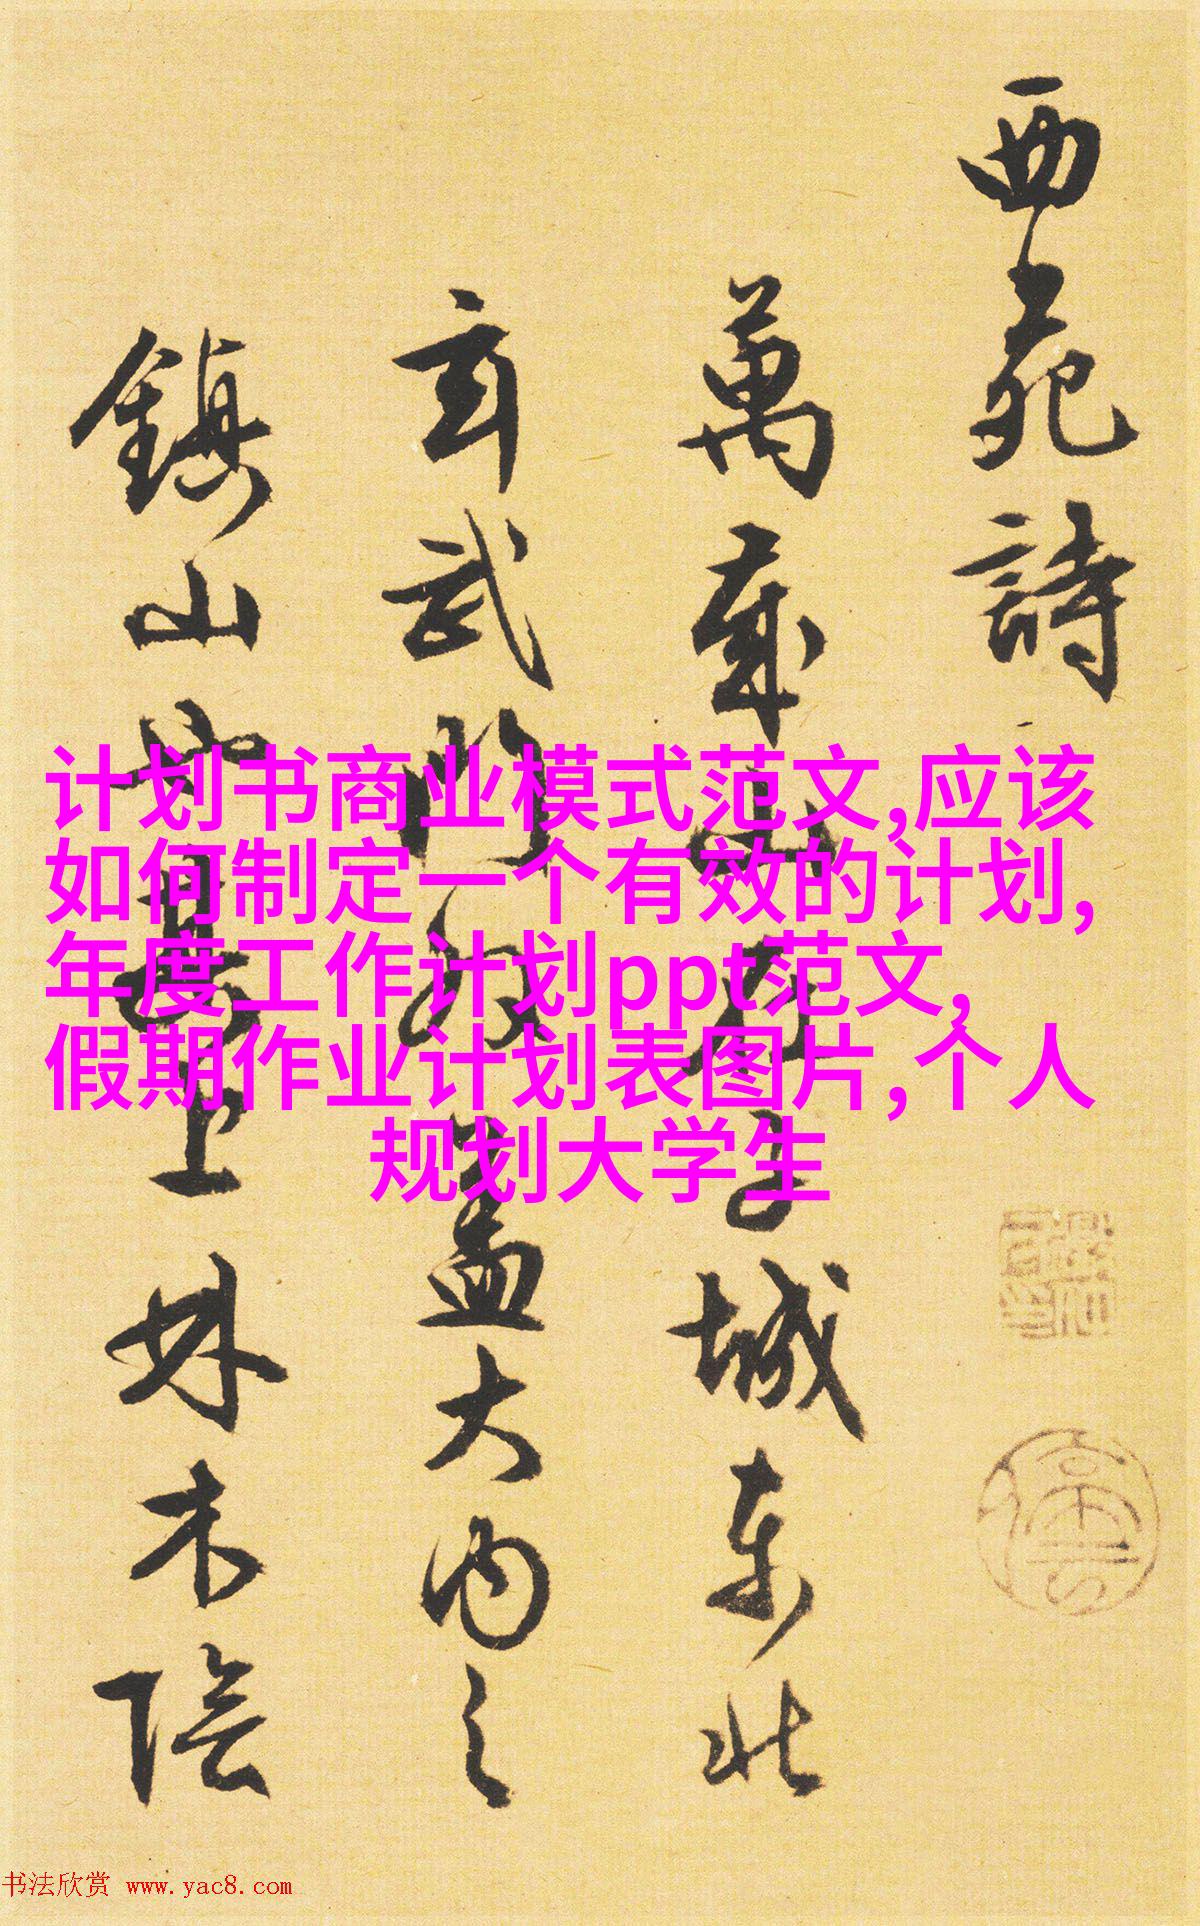 西苑詩
萬歲山在子城東北
玄武門外蓋大內之
鎮山也其上林木陰
计划书商业模式范文,应该
如何制定一个有效的计划,
年度工作计划ppt范文,
假期作业计划表图片,个人
规划大学生
书法欣赏 www.yac8.com